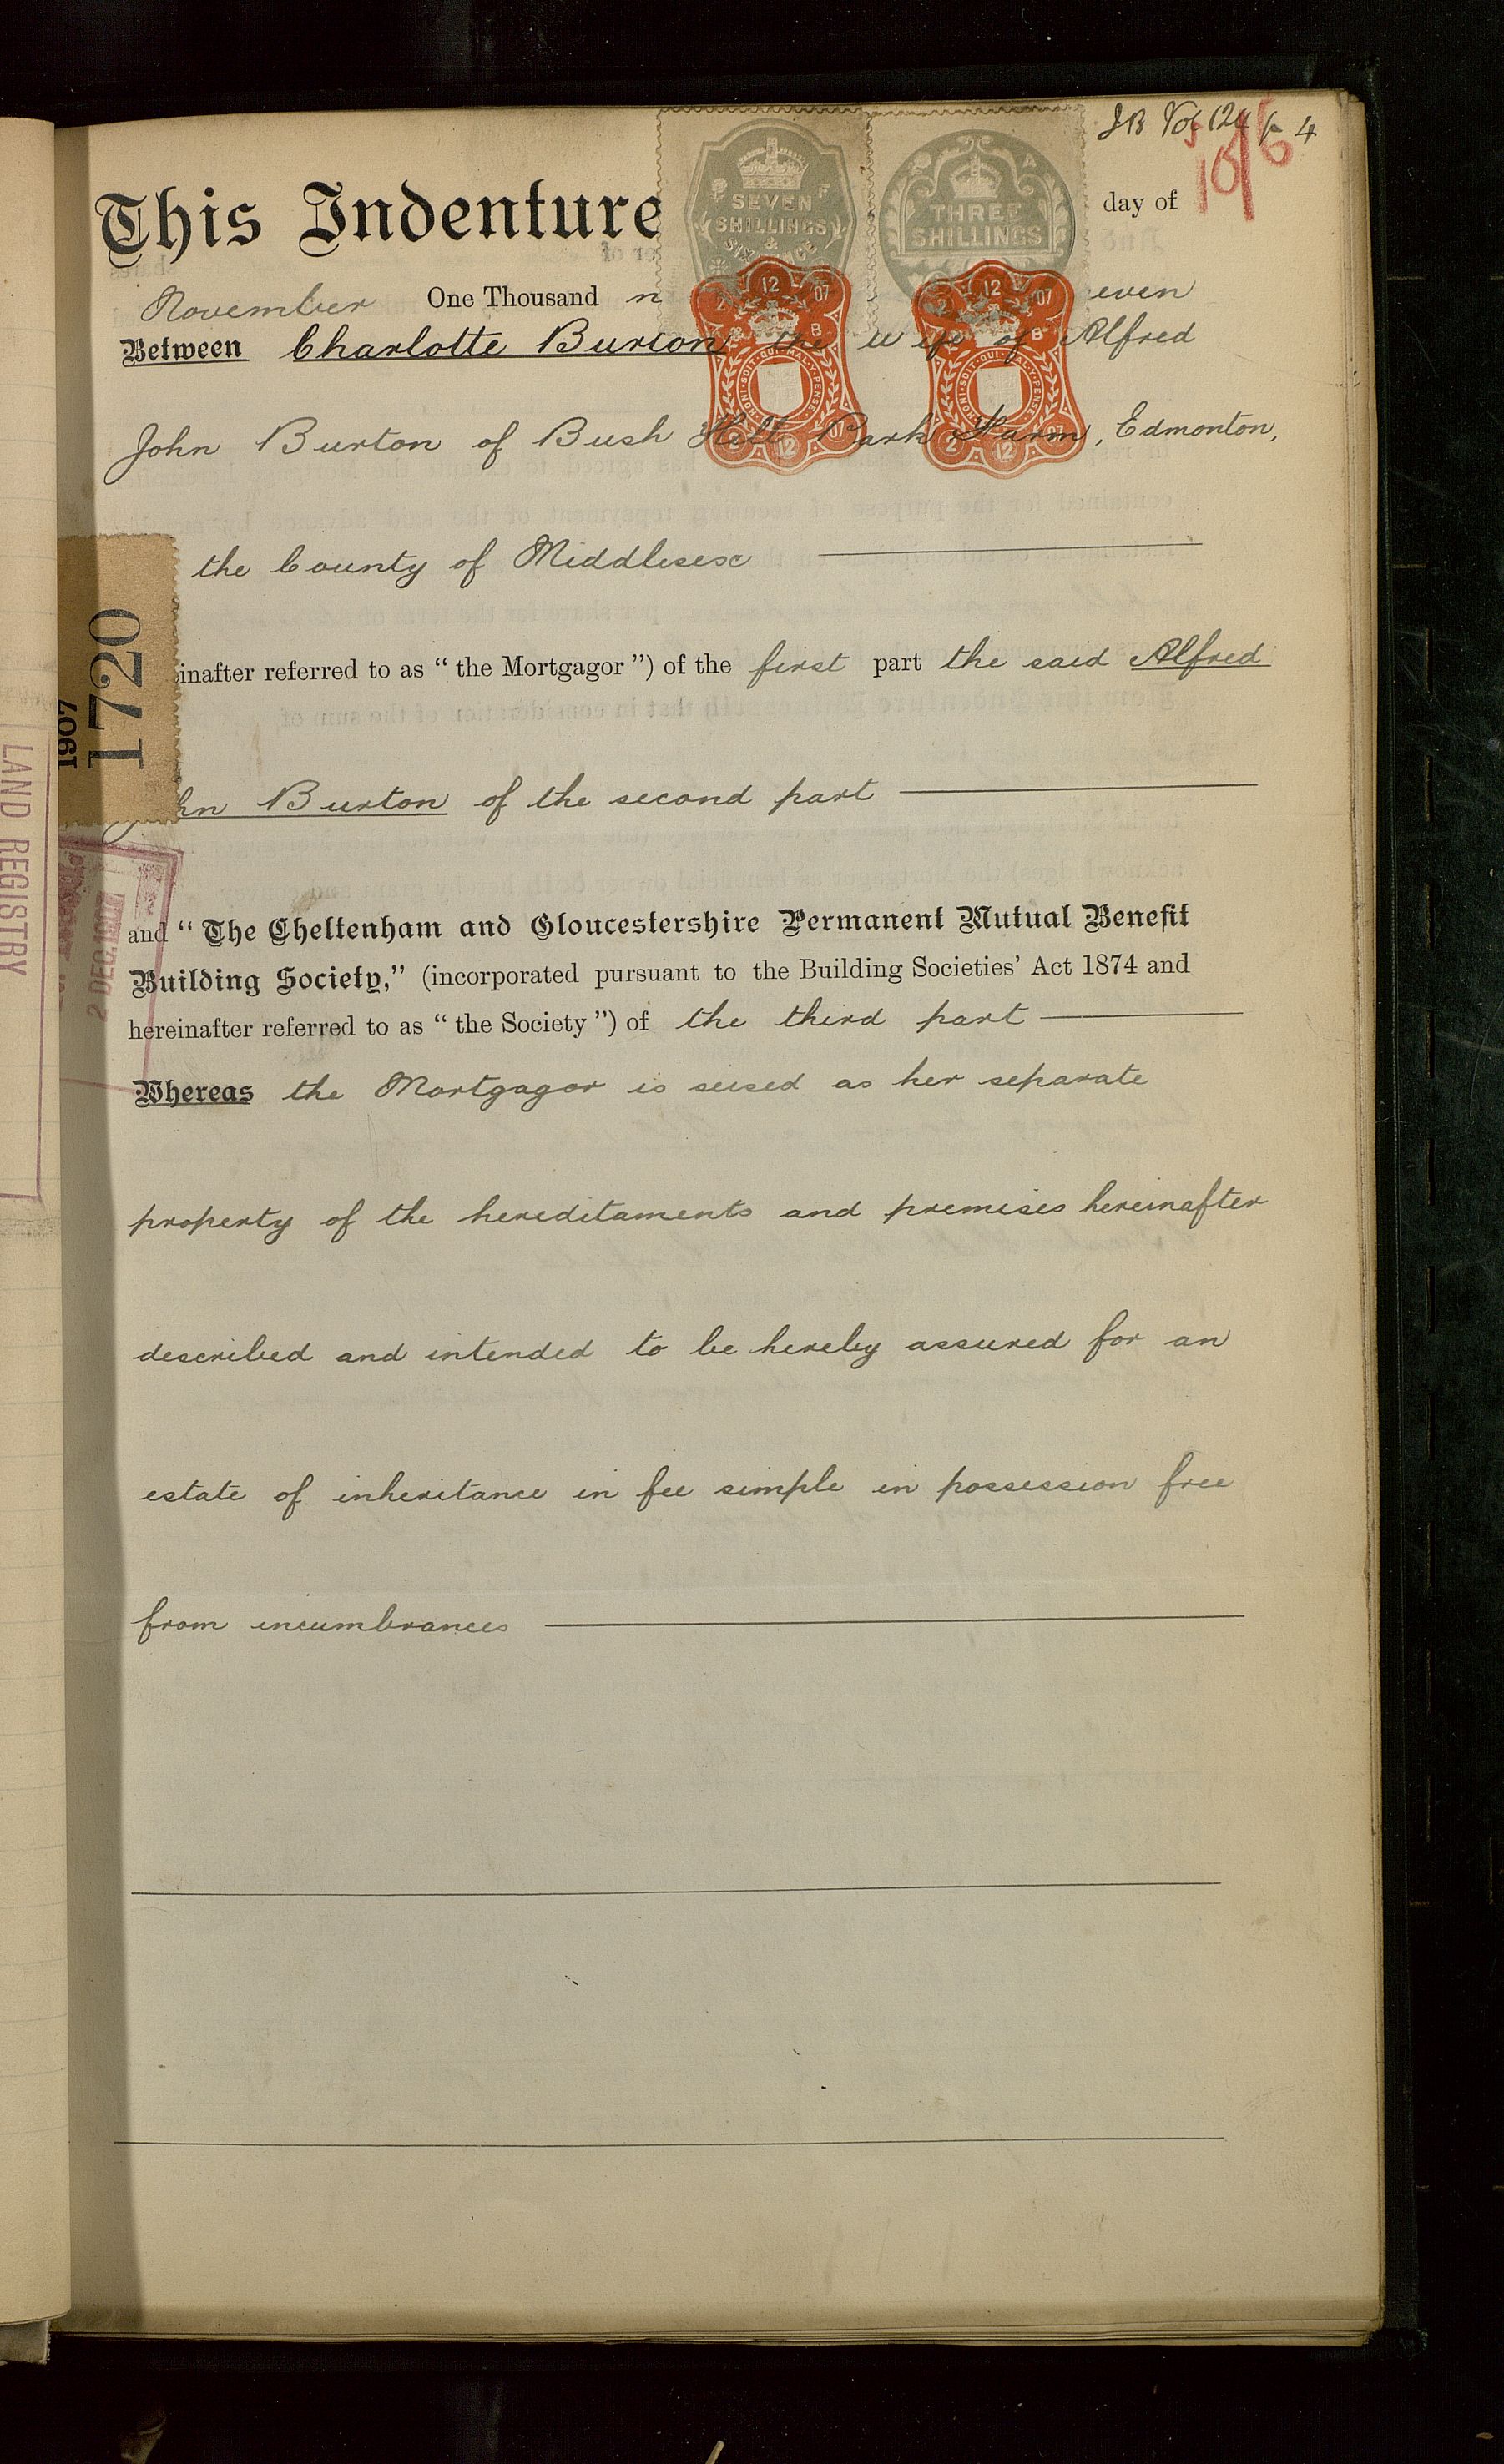 JB
This Indenture day of 10/6
SEVEN SHILLINGS & SIXPENCE
THREE SHILLINGS
November One Thousand n even
Between Charlotte Burton the wife of Alfred
12 07
12 07
HONI·SOIT·QUI·MAL·Y·PENSE
HONI·SOIT·QUI·MAL·Y·PENSE
John Burton of Bush Hill Park Farm, Edmonton,
2 12 07
2 12 07
the County of Middlesex
inafter referred to as “ the Mortgagor ”) of the first part the said Alfred
1907
1720
hn Burton of the second part
LAND REGISTRY
2 DEC. 1907
and “ The Cheltenham and Gloucestershire Permanent Mutual Benefit
Building Society,” (incorporated pursuant to the Building Societies’ Act 1874 and
hereinafter referred to as “ the Society ”) of the third part
Whereas the Mortgagor is seised as her separate
property of the hereditaments and premises hereinafter
described and intended to be hereby assured for an
estate of inheritance in fee simple in possession free
from incumbrances